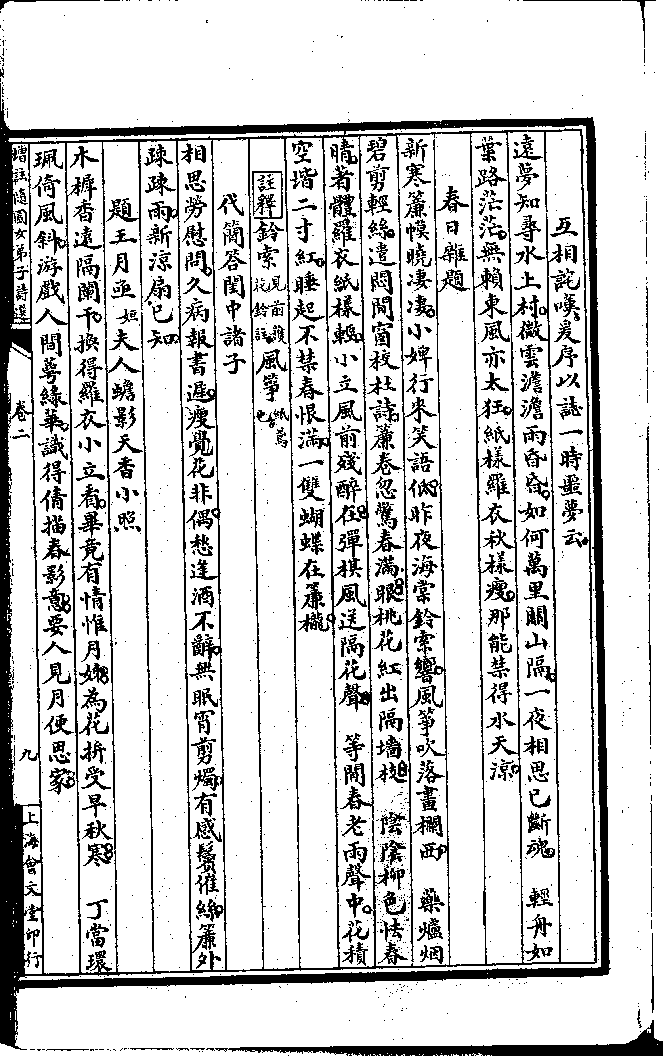 互相詫嘆爰序以誌一時噩夢云
遠夢知尋水上村微雲澹澹雨昏昏如何萬里關山隔一夜相思已斷魂　輕舟如
葉路茫茫無賴東風亦太狂紙樣羅衣秋樣瘦那能禁得水天涼
春日雜題
新寒簾幙曉凄凄小婢行來笑語低昨夜海棠鈴索響風箏吹落畫欄西　藥爐烟
碧剪輕絲遣悶閒窗校杜詩簾卷忽驚春滿眼桃花紅出隔墻枝　陰陰柳色怯春
晴著體羅衣紙樣輕小立風前殘醉在彈棋風送隔花聲　等閒春老雨聲中花積
空堦二寸紅睡起不禁春恨滿一雙蝴蝶在簾櫳
註釋鈴索見前護花鈴註風箏紙鳶也
代簡答閨中諸子
相思勞慰問久病報書遲瘦覺花非偶愁逢酒不辭無眠宵剪燭有感鬢催絲簾外
疎疎雨新涼扇已知
題王月函姬夫人蟾影天香小照
木樨香遠隔闌干換得羅衣小立看畢竟有情惟月姊為花拚受早秋寒　丁當環
珮倚風斜游戲人間萼綠華識得倩描春影意要人見月便思家
增註隨園女弟子詩選　卷二　九　上海會文堂印行